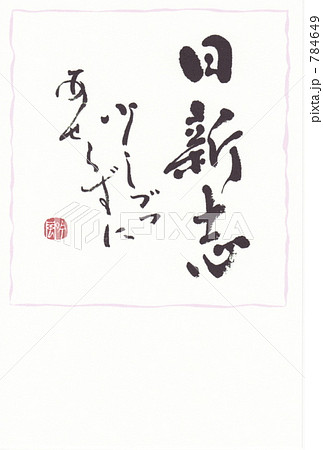 日新志
少しづつ
あせらずに
PIXTA
pixta.jp - 784649